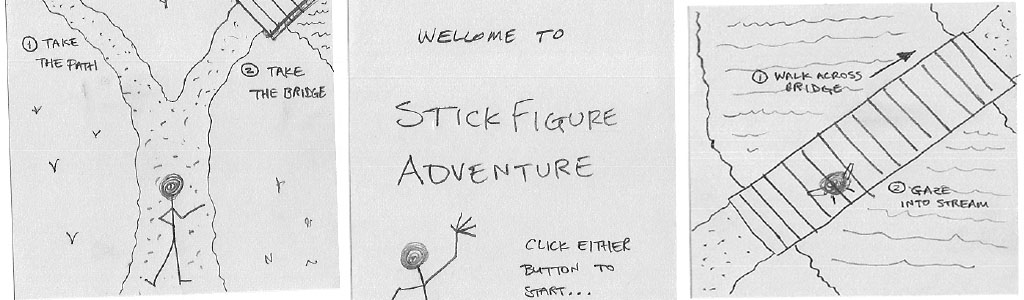 ① TAKE
THE PATH
② TAKE
THE BRIDGE
WELCOME TO
STICK FIGURE
ADVENTURE
CLICK EITHER
BUTTON TO
START...
① WALK ACROSS
BRIDGE
② GAZE
INTO STREAM